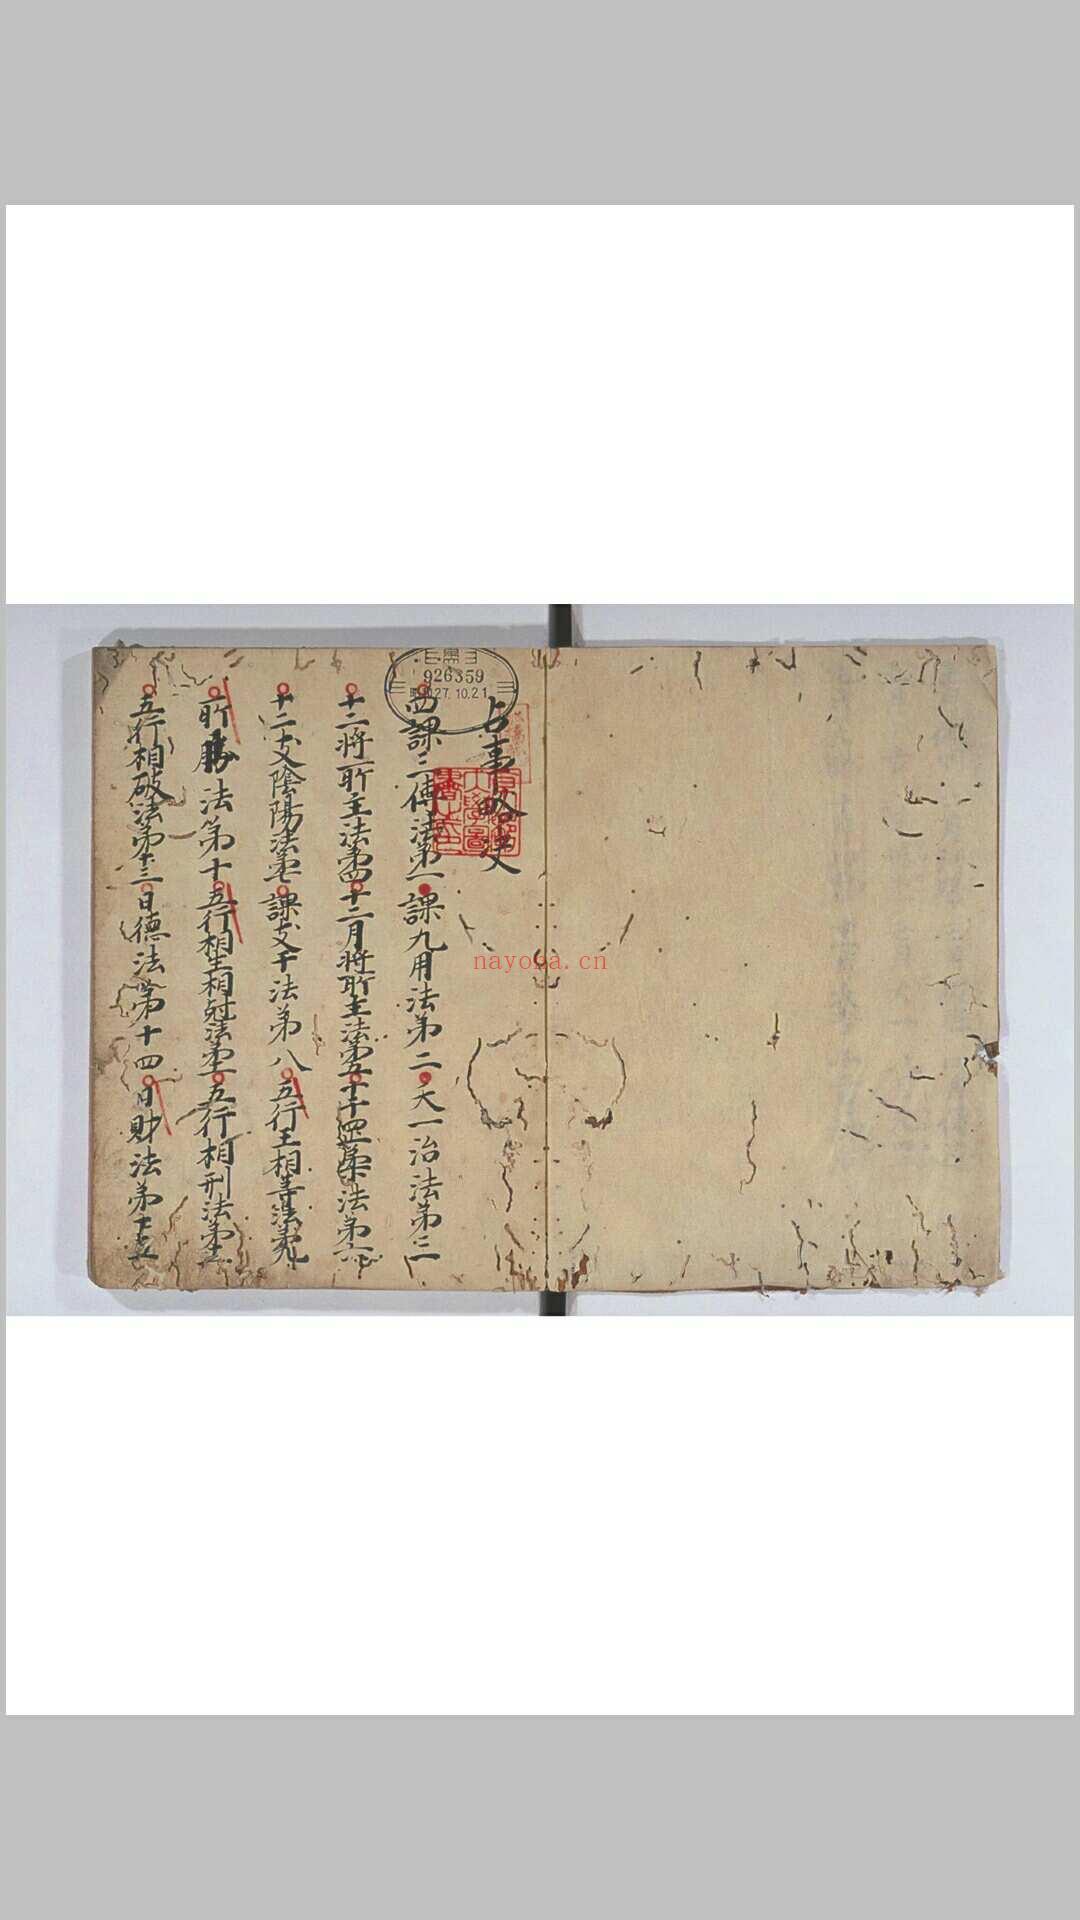 占事略决
四課三傳法第一 課九用法第二 天一治法第三
十二將所主法第四 十二月將所主法第五 十干罡柔法第六
十二支陰陽法第七 課支干法第八 五行王相等法第九
所勝法第十 五行相生相尅法第十一 五行相刑法第十二
五行相破法第十三 日德法第十四 日財法第十五
926359
昭和27.10.21
nayona.cn